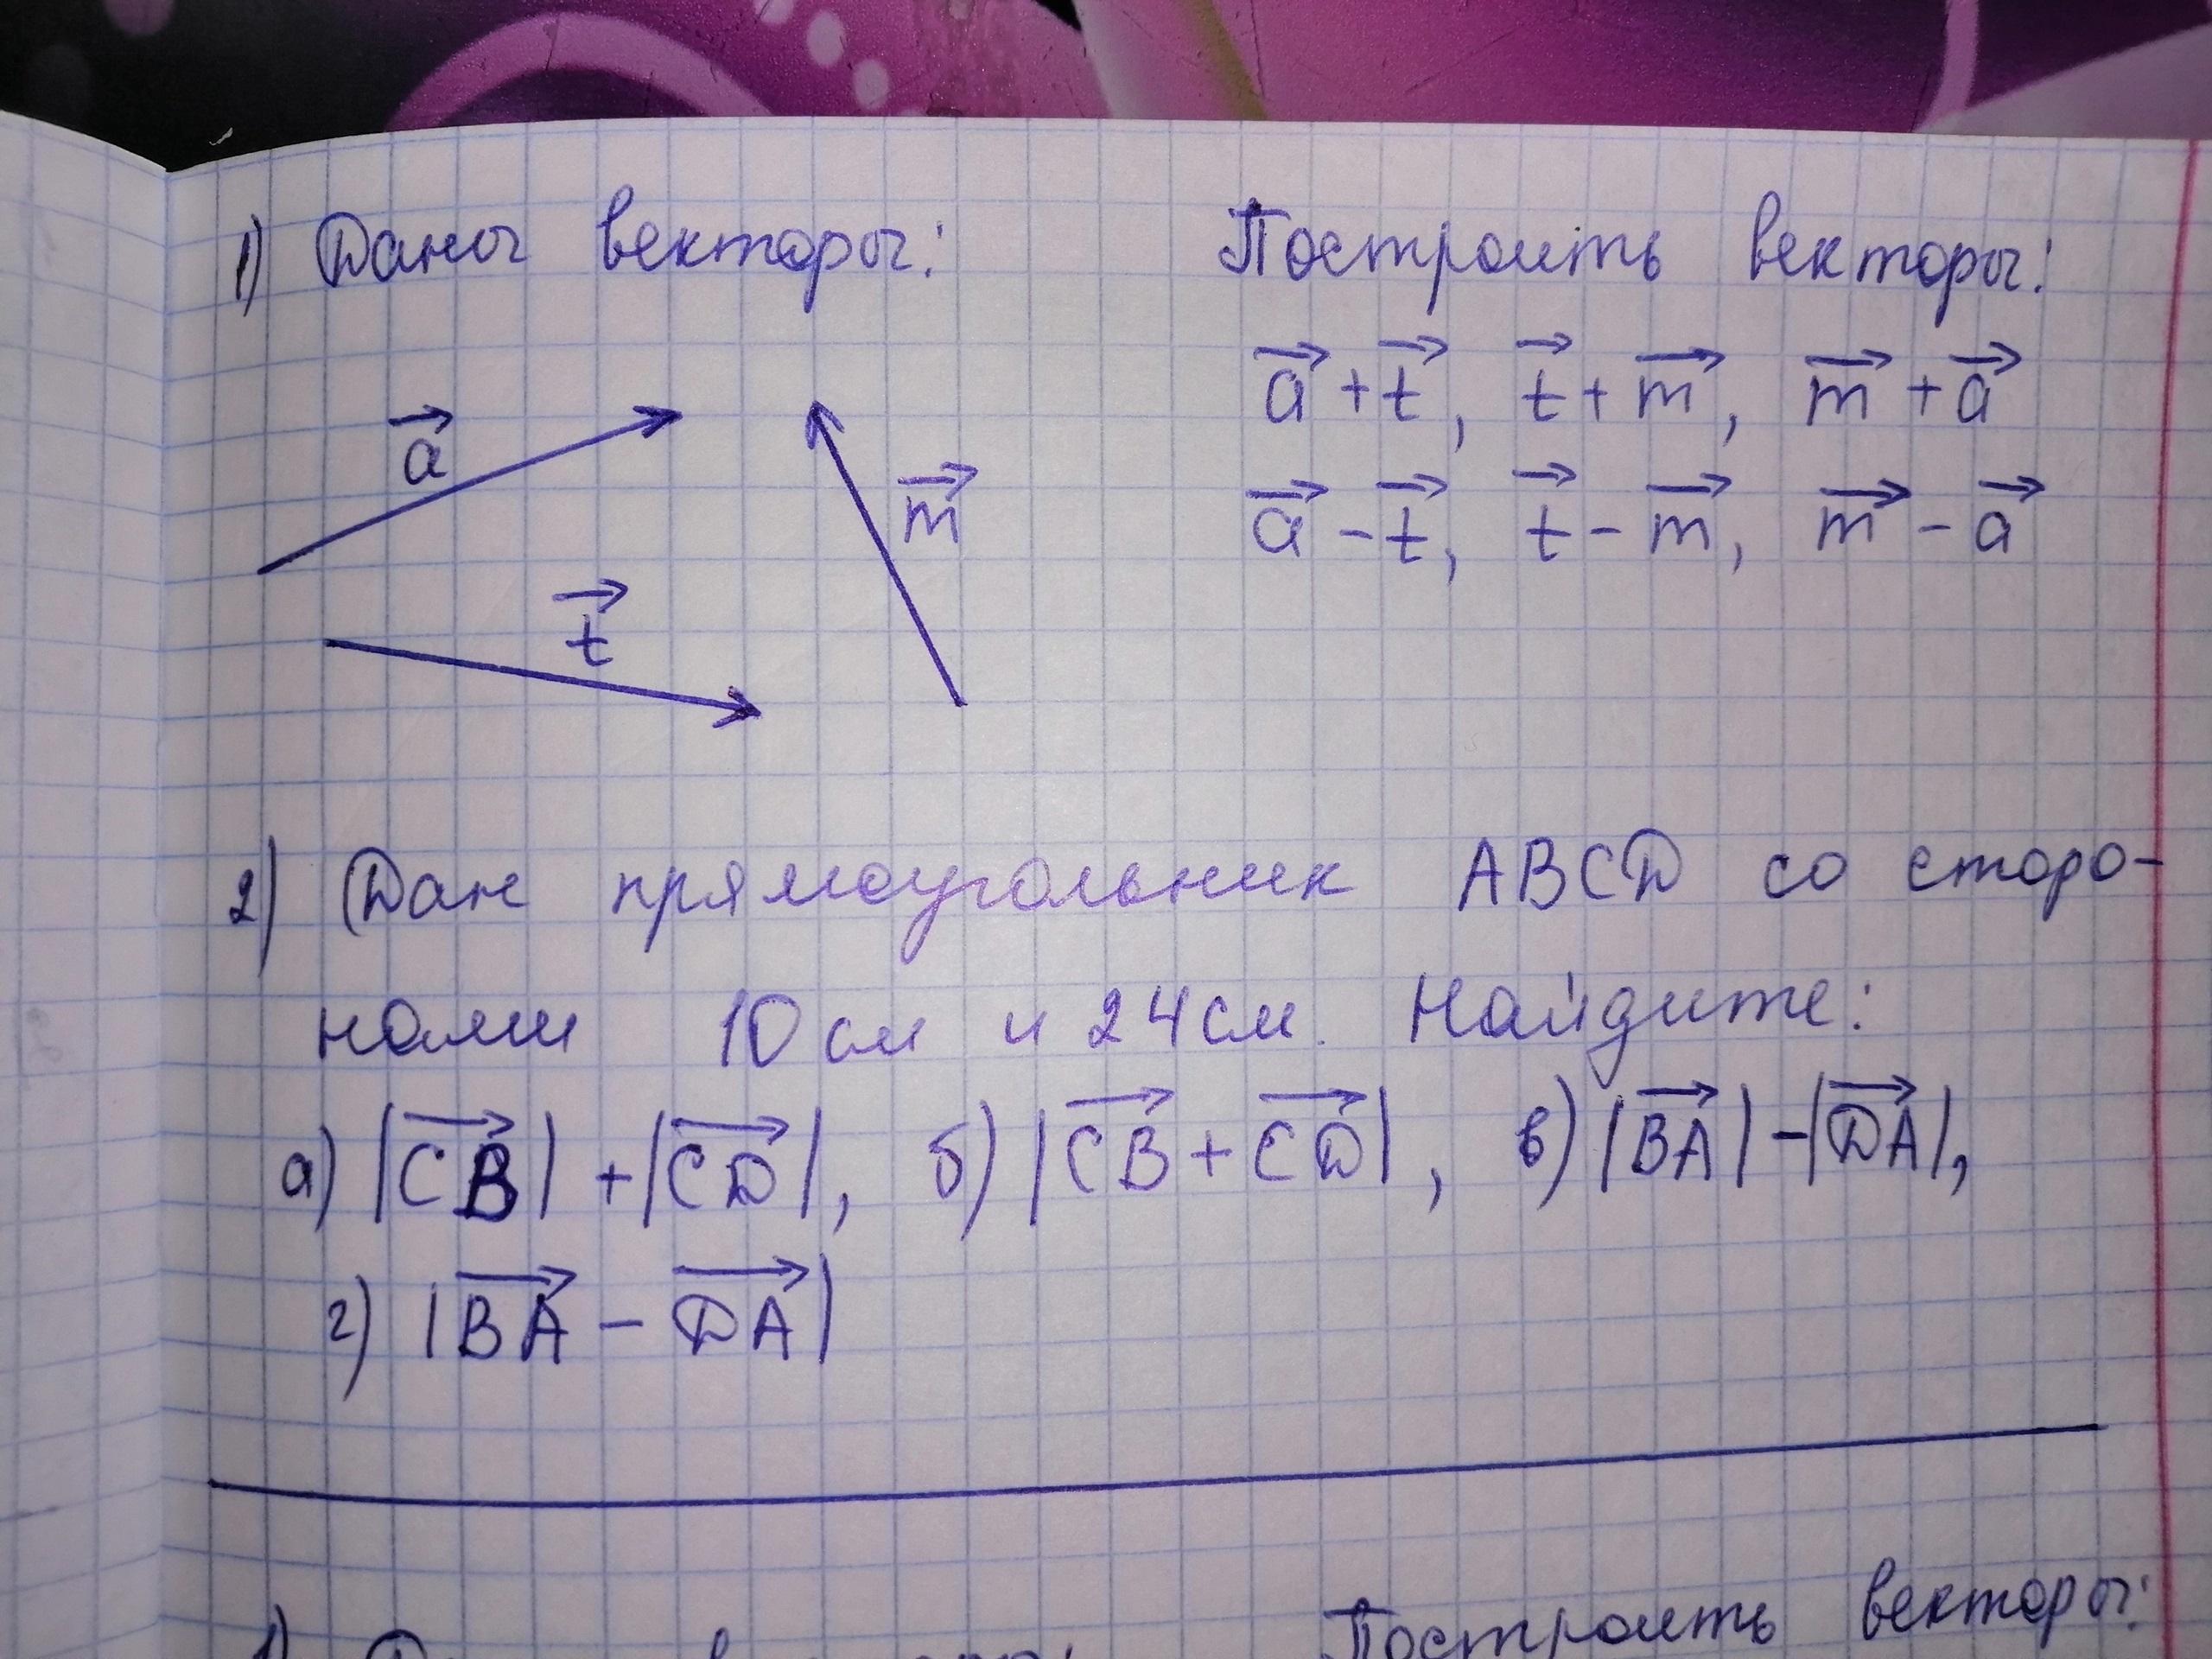 1) Даны векторы: Построить векторы:
a⃗ + t⃗, t⃗ + m⃗, m⃗ + a⃗
a⃗ - t⃗, t⃗ - m⃗, m⃗ - a⃗
a⃗
m⃗
t⃗
2) Дан прямоугольник ABCD со сторо-
нами 10 см и 24 см. Найдите:
а) |CB⃗| + |CD⃗|, б) |CB⃗ + CD⃗|, в) |BA⃗| - |DA⃗|,
г) |BA⃗ - DA⃗|
Построить векторы: